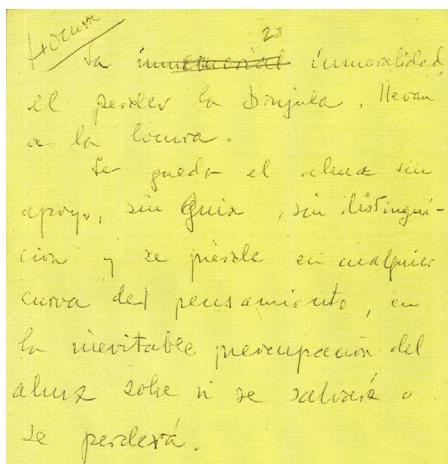 Locura
28
La inmemorial inmoralidad,
el perder la Brújula, llevan
a la locura.
Se queda el alma sin
apoyo, sin guía, sin distingui-
ción y se pierde en cualquier
curva del pensamiento, en
la inevitable preocupación del
alma sobre si se salvará o
se perderá.